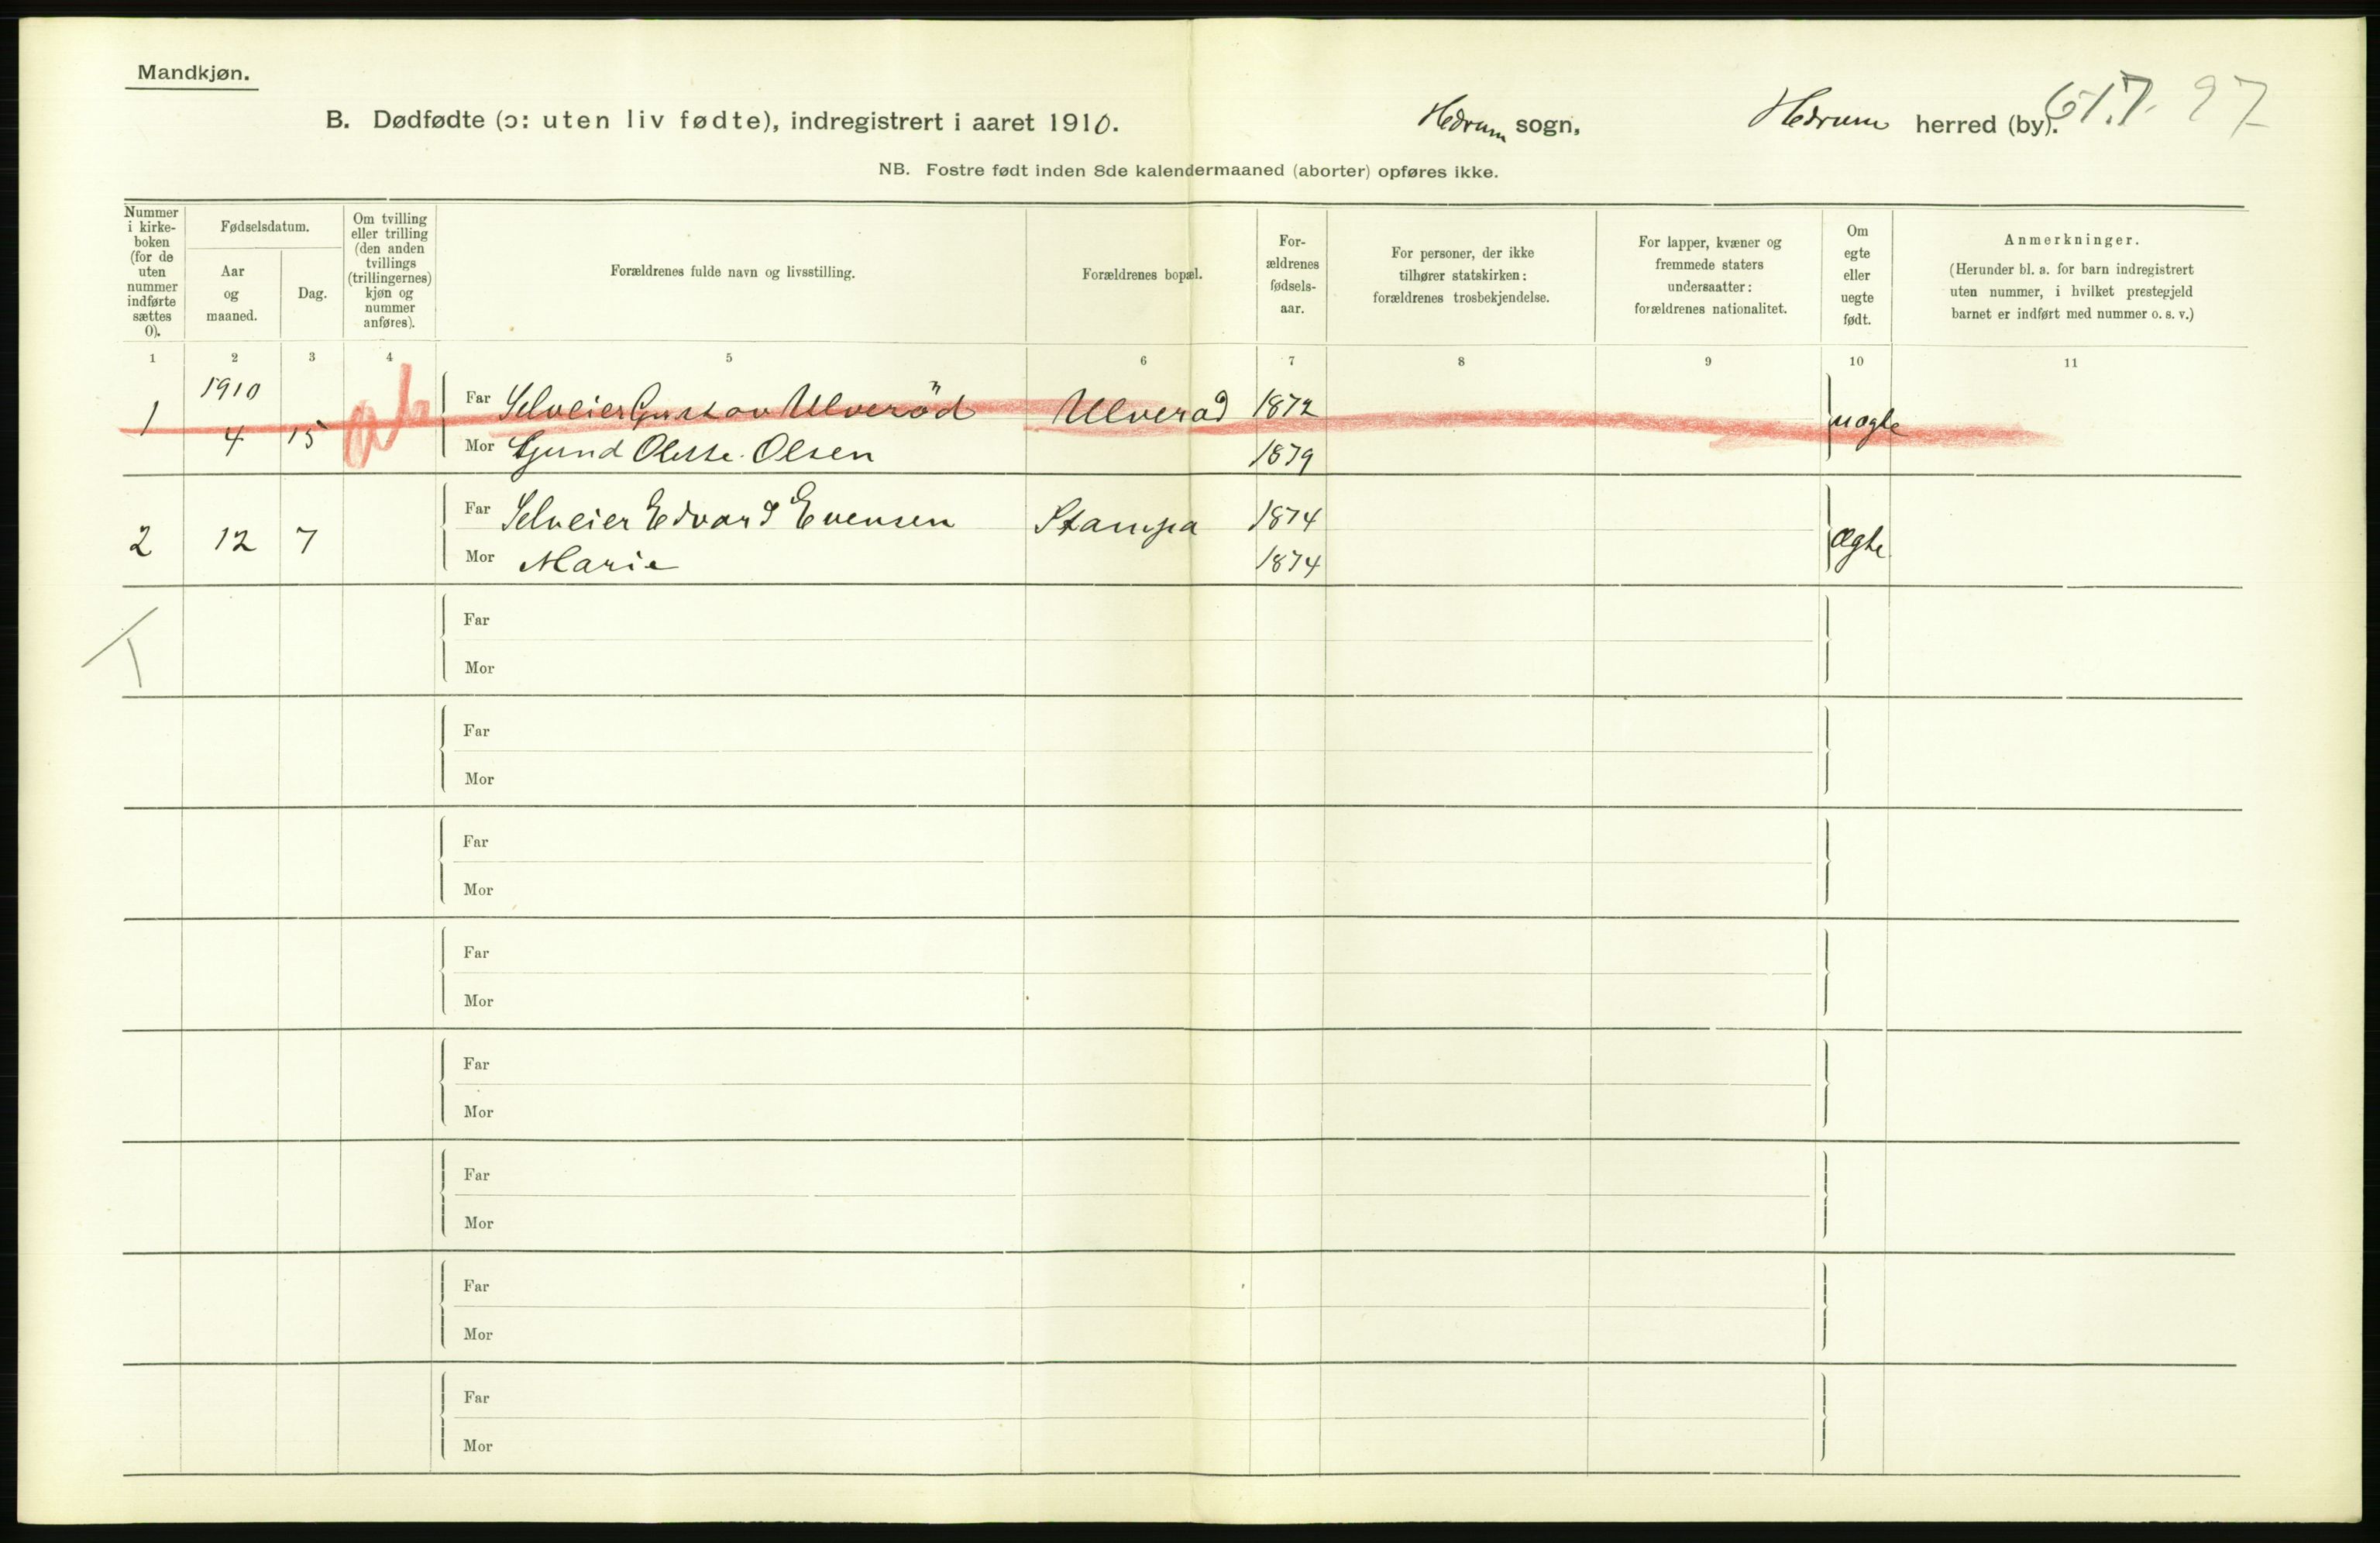 Mandkjøn.
B. Dødfødte (ɔ: uten liv fødte), indregistrert i aaret 1910.
Hedrum sogn,
Hedrum herred (by).
617. 27
NB. Fostre født inden 8de kalendermaaned (aborter) opføres ikke.
Nummer
i kirke-
boken
(for de
uten
nummer
indførte
sættes
0).
Fødselsdatum.
Aar
og
maaned.
Dag.
Om tvilling
eller trilling
(den anden
tvillings
(trillingernes)
kjøn og
nummer
anføres).
Forældrenes fulde navn og livsstilling.
Forældrenes bopæl.
For-
ældrenes
fødsels-
aar.
For personer, der ikke
tilhører statskirken:
forældrenes trosbekjendelse.
For lapper, kvæner og
fremmede staters
undersaatter:
forældrenes nationalitet.
Om
egte
eller
uegte
født.
Anmerkninger.
(Herunder bl. a. for barn indregistrert
uten nummer, i hvilket prestegjeld
barnet er indført med nummer o. s. v.)
1 2 3 4 5 6 7 8 9 10 11
1910
Far Selveier Gustav Ulverød Ulverød 1872
1 4 15 uægte
Mor Olsen 1879
Far Selveier Edvard Evensen Stampa 1874
2 12 7 Ægte
Mor Marie 1874
Far
Mor
Far
Mor
Far
Mor
Far
Mor
Far
Mor
Far
Mor
Far
Mor
Far
Mor